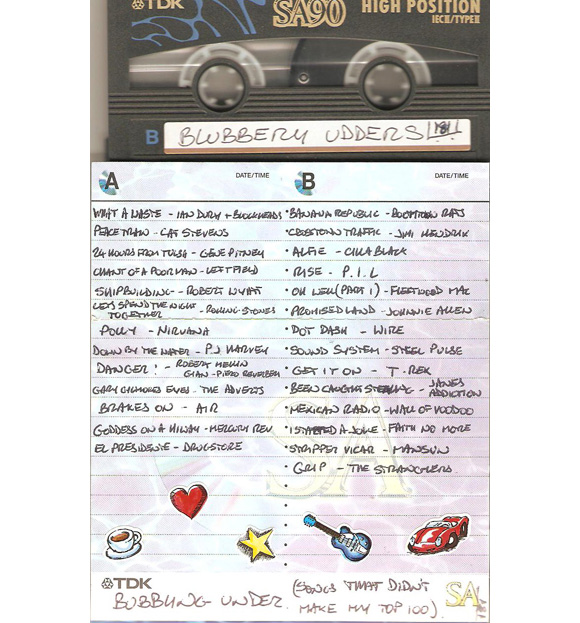 TDK
SA90
HIGH POSITION
IECII/TYPEII
B BLUBBERY UDDERS
A DATE/TIME
B DATE/TIME
WHAT A WASTE - IAN DURY + BLOCKHEADS
PEACE TRAIN - CAT STEVENS
24 HOURS FROM TULSA - GENE PITNEY
CHANT OF A POOR MAN - LEFTFIELD
SHIPBUILDING - ROBERT WYATT
LETS SPEND THE NIGHT TOGETHER - ROLLING STONES
POLLY - NIRVANA
DOWN BY THE WATER - PJ HARVEY
DANGER! - ROBERT MELLIN
GIAN-PIERO REVERBERI
GARY GILMORES EYES - THE ADVERTS
BRAKES ON - AIR
GODDESS ON A HIWAY - MERCURY REV
EL PRESIDENTE - DRUGSTORE
• BANANA REPUBLIC - BOOMTOWN RATS
• CROSSTOWN TRAFFIC - JIMI HENDRIX
• ALFIE - CILLA BLACK
• RISE - P.I.L
• OH WELL (PART 1) - FLEETWOOD MAC
• PROMISED LAND - JOHNNIE ALLEN
• DOT DASH - WIRE
• SOUND SYSTEM - STEEL PULSE
• GET IT ON - T-REX
• BEEN CAUGHT STEALING - JANES ADDICTION
• MEXICAN RADIO - WALL OF VOODOO
• I STARTED A JOKE - FAITH NO MORE
• STRIPPER VICAR - MANSUN
• GRIP - THE STRANGLERS
SA
TDK
BUBBLING UNDER. (SONGS THAT DIDN'T
MAKE MY TOP 100).
SA